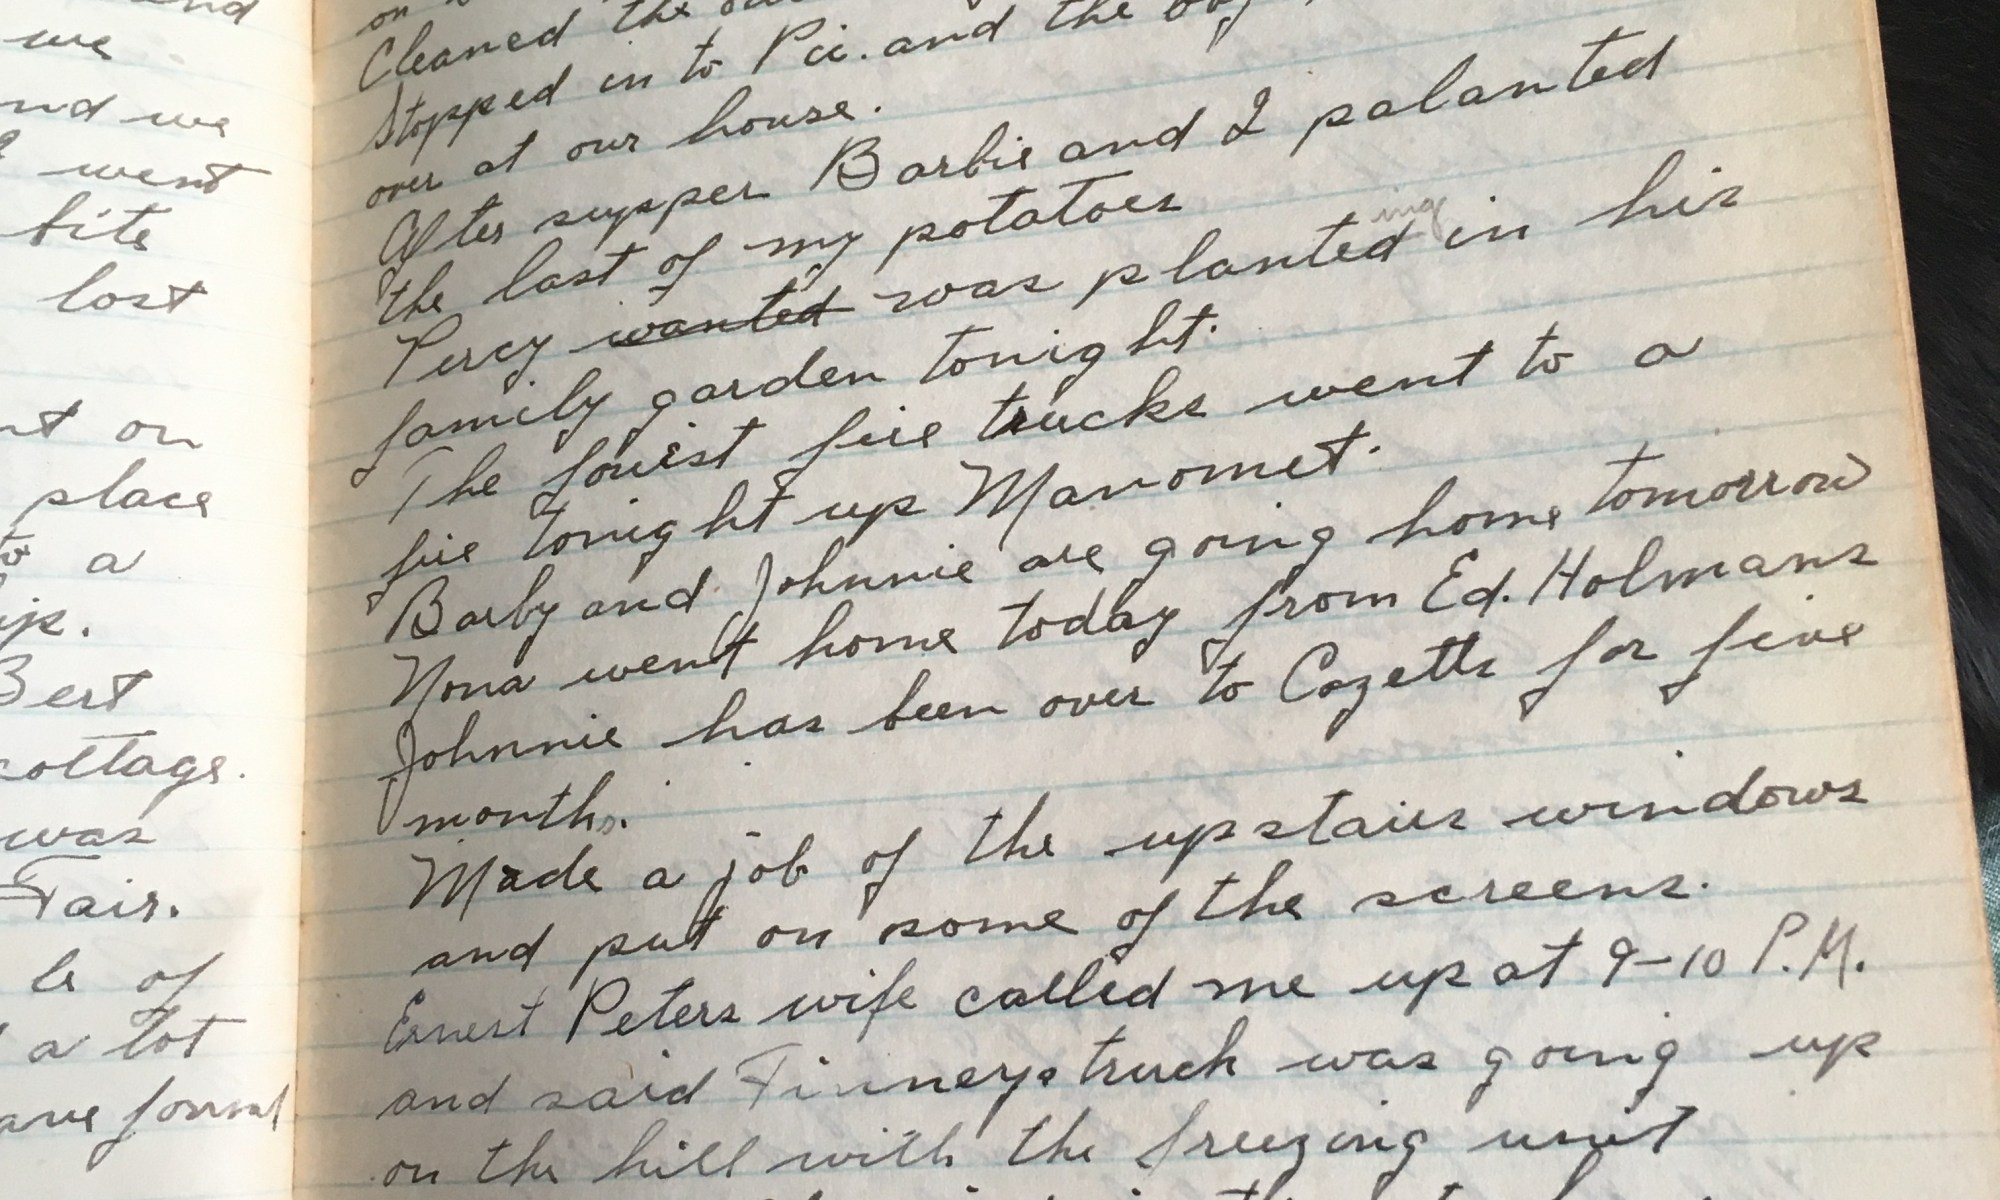 and
we
and we
went
bite
lost
on
place
a
Bert
cottage.
was
Fair.
of
a lot
found
on
Cleaned the
Stopped in to Pii. and the
over at our house.
After supper Barbie and I palanted
the last of my potatoes
Percy wanted was planted ing in his
family garden tonight.
The forist fire trucks went to a
fire tonight up Manomet.
Barby and Johnnie are going home tomorrow
Nona went home today from Ed. Holmans
Johnnie has been over to Cozetts for five
months.
Made a job of the upstairs windows
and put on some of the screens.
Ernest Peters wife called me up at 9-10 P.M.
and said Finneys truck was going up
on the hill with the freezing unit